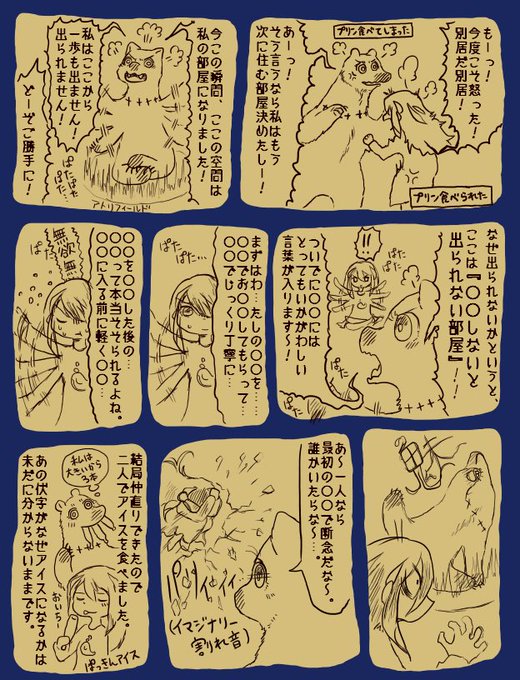 プリン食べてしまった
もーっ！
今度こそ怒った！
別居だ別居！
あーっ！
そう言うなら私はもう
次に住む部屋決めたしー！
プリン食べられた
今この瞬間、ここの空間は
私の部屋になりました！
私はここから
一歩も出ません！
出られません！
どーぞご勝手に！
ぱたぱた
ぱたぱた…
アトリフィールド
なぜ出られないかというと、
ここは『〇〇しないと
出られない部屋』！！
!!
ついでに〇〇には
とってもいかがわしい
言葉が入ります〜！
ぱた
ぱた
まずはわ…たしの〇〇を…
〇〇でお〇〇してもらって…
〇〇でじっくり丁寧に…
ぱた
ぱた…
〇〇を〇〇した後の…
〇〇〇って本当そそられるよね。
〇〇に入る前に軽く〇〇…
無欲無
ぱた
ぱた
あ〜一人なら
最初の〇〇で断念だな〜。
誰かいたらな〜…。
パリイィイィ
(イマジナリー
割れ音)
結局仲直りできたので
二人でアイスを食べました。
あの伏字がなぜアイスになるかは
未だに分からないままです。
私は
大きいから
3本
おいちー
ぱっきんアイス